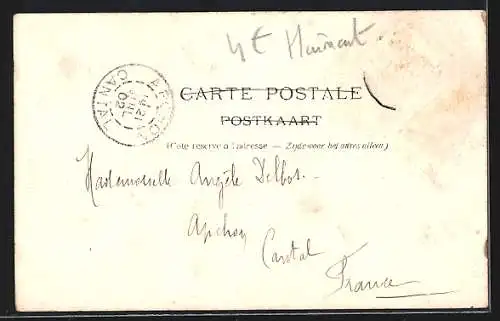 CARTE POSTALE
POSTKAART
(Côté réservé à l'adresse — Zijde voor het adres alleen.)
APCHON
21
JUIL
02
CANTAL
Mademoiselle Angèle Delbos.
Apchon
Cantal
France